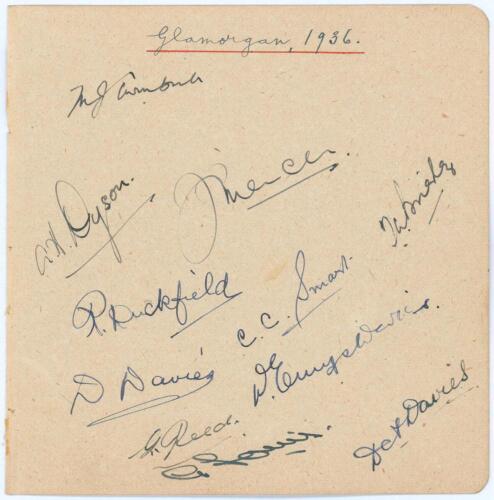 Glamorgan, 1936.
M J Turnbull
A. H. Dyson.
J Mercer.
T. L. Brierley
R. Duckfield
C. C. Smart
D Davies
D. Emrys Davies.
G. Reed.
D & H Davies